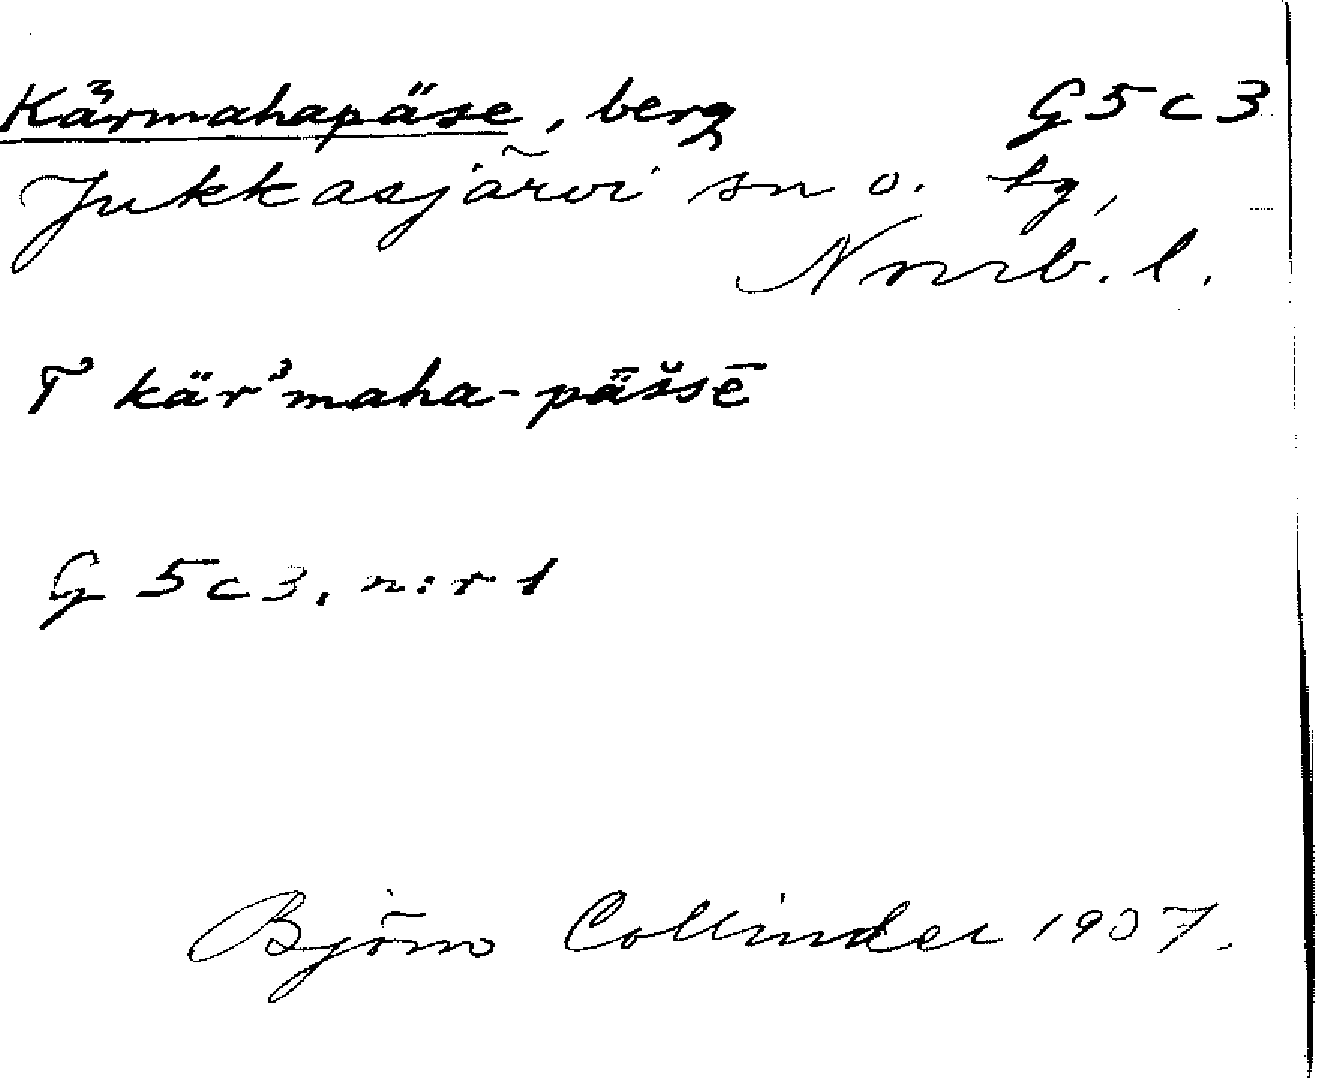 Kärmahapäse, berg G5c3
Jukkasjärvi sn o. tg,
Norrb. l.
T kär'maha-pässē
G 5 c 3, n:r 1
Björn Collinder 1907.